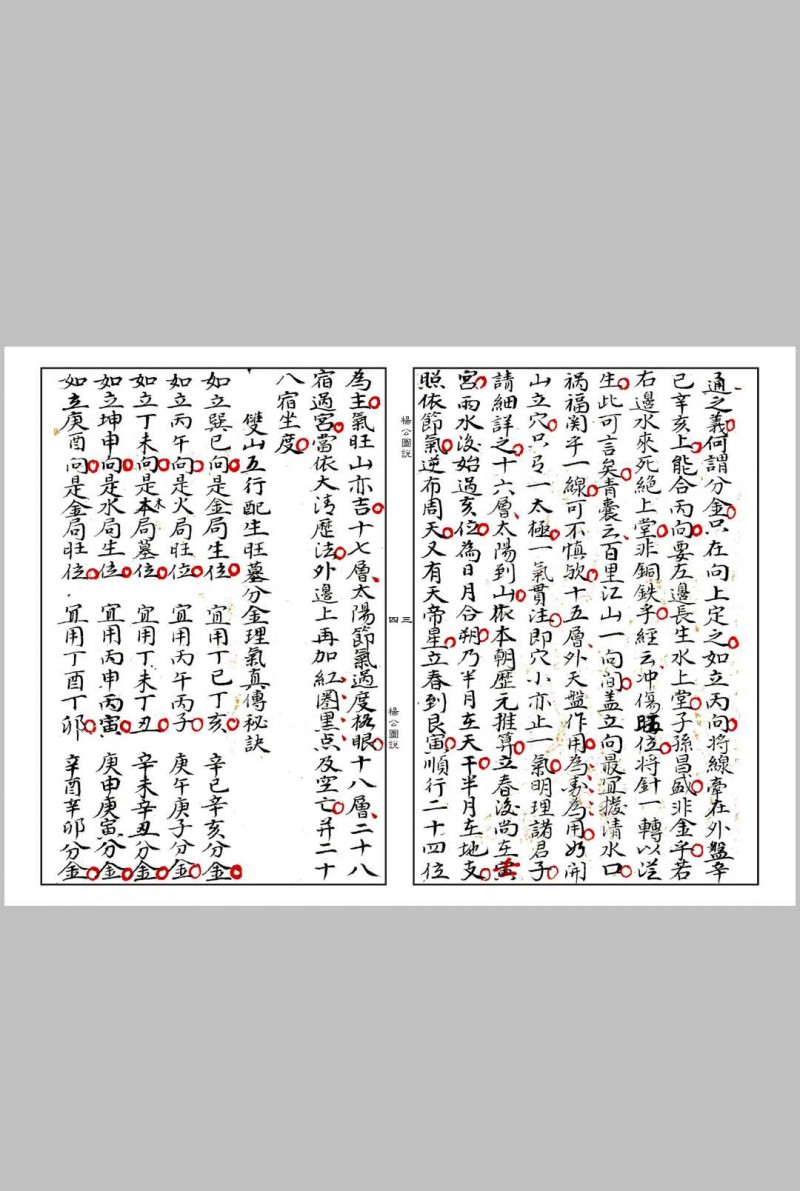 通之義何謂分金只在向上定之如立丙向將線牽在外盤辛
巳辛亥上能合丙向要左邊長生水上堂子孫昌盛非金乎若
右邊水來死絕上堂非銅鐵乎經云沖傷位將針一轉以從
生此可言矣青囊云百里江山一向間盖立向最宜撥清水口
禍福関乎一線可不慎欤十五層外天盤作用為為用如開
山立穴只弓一太極一氣貫注即穴小亦止一氣明理諸君子
請細詳之十六層太陽到山依本朝歷元推算立春後尚在
宮雨水後始過亥位為日月合朔乃半月在天干半月在地支
照依節氣逆布周天又有天帝星立春到艮寅順行二十四位
楊公圖說
三
四
楊公圖說
為主氣旺山亦吉十七層太陽節氣過度格眼十八層二十八
宿過宮當依大清歷法外邊上再加紅圈黑点及空亡并二十
八宿坐度
雙山五行配生旺墓分金理氣真傳秘訣
如立巽巳向是金局生位 宜用丁巳丁亥 辛巳辛亥分金
如立丙午向是火局旺位 宜用丙午丙子 庚午庚子分金
如立丁未向是本木局墓位 宜用丁未丁丑 辛未辛丑分金
如立坤申向是水局生位 宜用丙申丙寅 庚申庚寅分金
如立庚酉向是金局旺位 宜用丁酉丁卯 辛酉辛卯分金